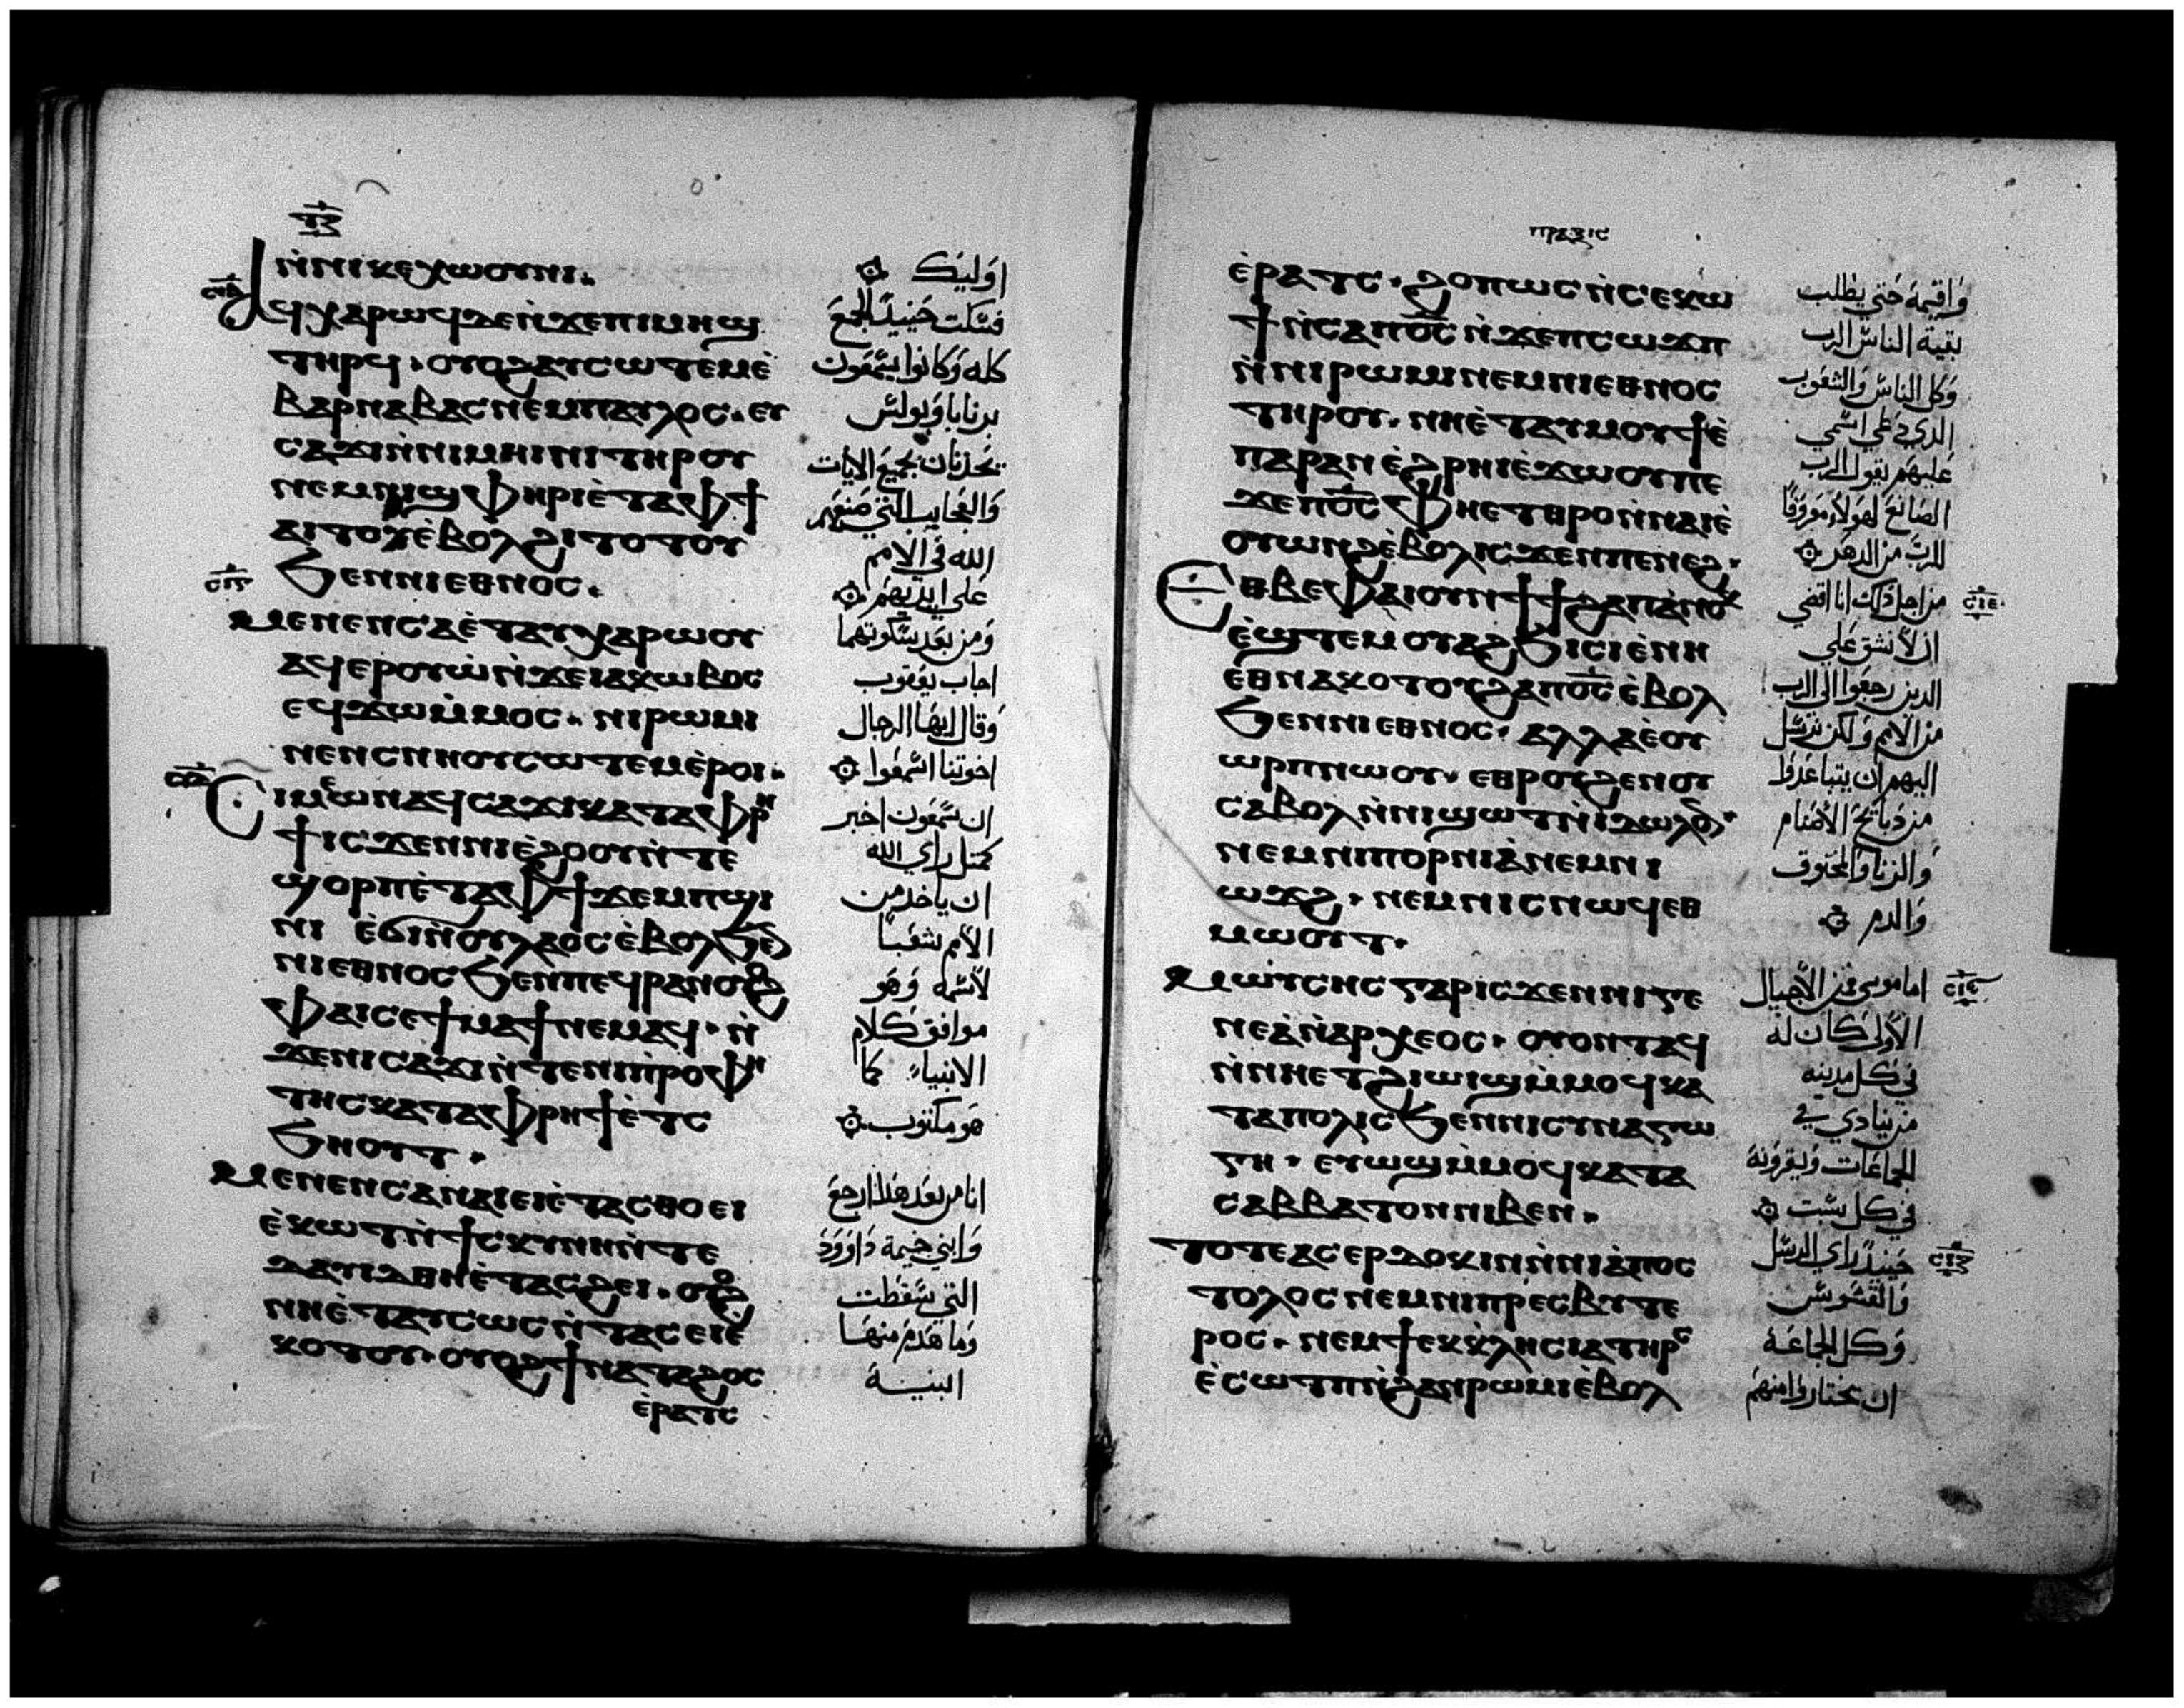 ⲛ̀ⲛⲓⲕⲉⲭⲱⲟⲩⲛⲓ.
ⲁϥⲭⲁⲣⲱϥ ⲇⲉ ⲛ̀ϫⲉⲡⲓⲙⲏϣ
ⲧⲏⲣϥ · ⲟⲩⲟϩ ⲁⲩⲥⲱⲧⲉⲙ ⲉ̀
ⲃⲁⲣⲛⲁⲃⲁⲥ ⲛⲉⲙ ⲡⲁⲩⲗⲟⲥ · ⲉⲩ
ⲥⲁϫⲓ ⲛ̀ⲛⲓⲙⲏⲓⲛⲓ ⲧⲏⲣⲟⲩ
ⲛⲉⲙ ⲛⲓϣⲫⲏⲣⲓ ⲉ̀ⲧⲁ ⲫϯ
ⲁⲓⲧⲟⲩ ⲉ̀ⲃⲟⲗ ϩⲓⲧⲟⲧⲟⲩ
ϧⲉⲛ ⲛⲓⲉⲑⲛⲟⲥ.
ⲙⲉⲛⲉⲛⲥⲁ ⲉ̀ⲧⲁⲩⲭⲁⲣⲱⲟⲩ
ⲁϥⲉⲣⲟⲩⲱ̀ ⲛ̀ϫⲉ ⲓⲁⲕⲱⲃⲟⲥ
ⲉϥϫⲱ ⲙ̀ⲙⲟⲥ · ⲛⲓⲣⲱⲙⲓ
ⲛⲉⲛⲥⲛⲏⲟⲩ ⲥⲱⲧⲉⲙ ⲉ̀ⲣⲟⲓ.
ⲥⲓⲙⲉⲱⲛ ⲁϥⲥⲁϫⲓ ⲕⲁⲧⲁ ⲫⲣⲏ
ϯ ⲓⲥϫⲉⲛ ⲛⲓⲉ̀ϩⲟⲟⲩ ⲛ̀ⲧⲉ
ϣⲟⲣⲡ ⲉ̀ⲧⲁ ⲫϯ ϫⲉⲙⲡϣⲓ
ⲛⲓ ⲉ̀ϭⲓ ⲛ̀ⲟⲩⲗⲁⲟⲥ ⲉ̀ⲃⲟⲗ ϧⲉⲛ
ⲛⲓⲉⲑⲛⲟⲥ ϧⲉⲛ ⲡⲉϥⲣⲁⲛ ⲟⲩⲟϩ
ⲫⲁⲓ ⲥⲉϯⲙⲁϯ ⲛⲉⲙⲁϥ · ⲛ̀
ϫⲉ ⲛⲓⲥⲁϫⲓ ⲛ̀ⲧⲉ ⲛⲓⲡ̀ⲣⲟⲫⲏ
ⲧⲏⲥ ⲕⲁⲧⲁ ⲫⲣⲏϯ ⲉ̀ⲧⲥ
ϧⲏⲟⲩⲧ.
ⲙⲉⲛⲉⲛⲥⲁ ⲛⲁⲓ ⲉⲓⲉ̀ⲧⲁⲥⲑⲟ ⲉⲓ
ⲉ̀ⲕⲱⲧ ⲛ̀ϯⲥⲕⲩⲛⲏ ⲛ̀ⲧⲉ
ⲇⲁⲩⲓⲇ ⲑⲏⲉ̀ⲧⲁⲥϩⲉⲓ · ⲟⲩⲟϩ
ⲛⲏⲉ̀ⲧⲁⲩⲥⲱⲥ ⲛ̀ⲧⲁⲥ ⲉⲓⲉ̀
ⲕⲟⲧⲟⲩ · ⲟⲩⲟϩ ϯⲛⲁⲧⲁϩⲟⲥ
ⲉ̀ⲣⲁⲧⲥ
اوليك
فسكت حينيذ الجمع
كله وكانوا يسمعون
برنابا وبولس
يحدثان بجميع الايات
والعجايب التي صنعهم
الله في الامم
على ايديهم
ومن بعد سكوتهما
اجاب يعقوب
وقال ايها الرجال
اخوتنا اسمعوا
ان سمعون اخبر
كمثل راي الله
ان ياخد من
الامم شعبا
لاسمه وهو
موافق كلام
الانبياء كما
هو مكتوب
انا من بعد هدا ارجع
وابني خيمة داوود
التي سقطت
وما هدم منها
البنية
ⲡⲣⲁⲝⲓⲥ
ⲉ̀ⲣⲁⲧⲥ · ϩⲟⲡⲱⲥ ⲛ̀ⲥⲉⲕⲱ
ϯ ⲛ̀ⲥⲁ ⲡⲟ̅ⲥ̅ ⲛ̀ϫⲉ ⲡⲥⲱϫⲡ
ⲛ̀ⲛⲓⲣⲱⲙⲓ ⲛⲉⲙ ⲛⲓⲉⲑⲛⲟⲥ
ⲧⲏⲣⲟⲩ · ⲛⲏⲉ̀ⲧⲁⲩⲙⲟⲩϯ ⲉ̀
ⲡⲁⲣⲁⲛ ⲉ̀ϩⲣⲏⲓ ⲉ̀ϫⲱⲟⲩ ⲡⲉ
ϫⲉ ⲡⲟ̅ⲥ̅ ⲫⲏⲉⲧⲑⲣⲟ ⲛ̀ⲛⲁⲓ ⲉ̀
ⲟⲩⲱⲛϩ ⲉ̀ⲃⲟⲗ ⲓⲥϫⲉⲛ ⲡⲉⲛⲉϩ ·
ⲉⲑⲃⲉ ⲫⲁⲓ ⲟⲩⲛ ϯϯϩⲁⲡ ⲁ̀ⲛⲟⲕ
ⲉ̀ϣⲧⲉⲙⲟⲩⲁϩϧⲓⲥⲓ ⲉ̀ⲛⲏ
ⲉⲑⲛⲁⲕⲟⲧⲟⲩ ϩⲁ ⲡⲟ̅ⲥ̅ ⲉ̀ⲃⲟⲗ
ϧⲉⲛ ⲛⲓⲉⲑⲛⲟⲥ · ⲁⲗⲗⲁ ⲉ̀ⲟⲩ
ⲱⲣⲡ ⲛⲱⲟⲩ · ⲉⲑⲣⲟⲩϩⲉⲛⲟⲩ
ⲥⲁⲃⲟⲗ ⲛ̀ⲛⲓϣⲱⲧ ⲛ̀ⲓⲇⲱⲗⲟⲛ
ⲛⲉⲙ ⲛⲓⲡⲟⲣⲛⲓⲁ̀ ⲛⲉⲙ ⲛⲓ
ⲱϫϩ · ⲛⲉⲙ ⲛⲓⲥⲛⲱϥ ⲉⲑ
ⲙⲱⲟⲩⲧ.
ⲙⲱⲩ̀ⲥⲏⲥ ⲅⲁⲣ ⲓⲥϫⲉⲛ ⲛⲓⲅⲉ
ⲛⲉⲁ̀ ⲛ̀ⲁⲣⲭⲉⲟⲥ · ⲟⲩⲟⲛⲧⲁϥ
ⲛ̀ⲛⲏⲉⲧϩⲓⲱⲓϣ ⲙ̀ⲙⲟϥ ⲕⲁ
ⲧⲁ ⲡⲟⲗⲓⲥ ϧⲉⲛ ⲛⲓⲥⲩⲛⲁⲅⲱ
ⲅⲏ · ⲉⲩⲱϣ ⲙ̀ⲙⲟϥ ⲕⲁⲧⲁ
ⲥⲁⲃⲃⲁⲧⲟⲛ ⲛⲓⲃⲉⲛ.
ⲧⲟⲧⲉ ⲁⲥⲉⲣⲇⲟⲕⲓⲛ ⲛ̀ⲛⲓⲁ̀ⲡⲟⲥ
ⲧⲟⲗⲟⲥ ⲛⲉⲙ ⲛⲓⲡⲣⲉⲥⲃⲩⲧⲉ
ⲣⲟⲥ · ⲛⲉⲙ ϯⲉⲕⲕⲗⲏⲥⲓⲁ ⲧⲏⲣⲥ
ⲉ̀ⲥⲱⲧⲡ ⲛ̀ϩⲁⲛⲣⲱⲙⲓ ⲉ̀ⲃⲟⲗ
واقيمه حتى يطلب
بقية الناس الرب
وكل الناس والشعوب
الدي دعي اسمي
عليهم يقول الرب
الصانع لهولاء معروفا
للرب من الدهر
من اجل دلك انا اقضي
ان لا نشق على
الدين رجعوا الى الرب
من الامم ولكن نرسل
اليهم ان يتباعدوا
من دبايح الاصنام
والزنا والمخنوق
والدم
اما موسى فمن الاجيال
الاولى كان له
في كل مدينه
من ينادي في
الجماعات ويقرونه
في كل سبت
حينيذ راي الرسل
والقسوس
وكل الجماعة
ان يختاروا منهم